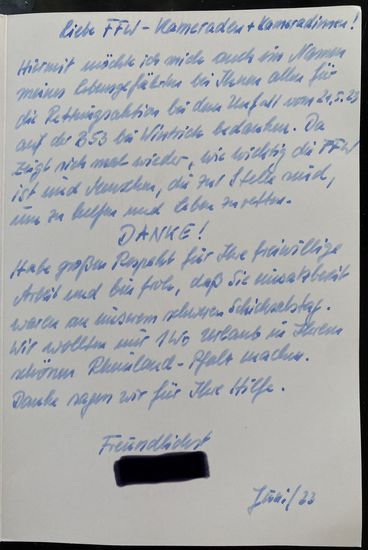 Liebe FFW-Kameraden + Kameradinnen!
Hiermit möchte ich mich auch im Namen
meines Lebensgefährten bei Ihnen allen für
die Rettungsaktion bei dem Unfall vom 21.5.23
auf der B53 bei Wintrich bedanken. Da
zeigt sich mal wieder, wie wichtig die FFW
ist und Menschen, die zur Stelle sind,
um zu helfen und Leben zu retten.
DANKE!
Habe großen Respekt für Ihre freiwillige
Arbeit und bin froh, daß Sie einsatzbereit
waren an unserem schweren Schicksalstag.
Wir wollten nur 1 Wo Urlaub in Ihrem
schönen Rheinland-Pfalz machen.
Danke sagen wir für Ihre Hilfe.
Freundlichst
Juni/23